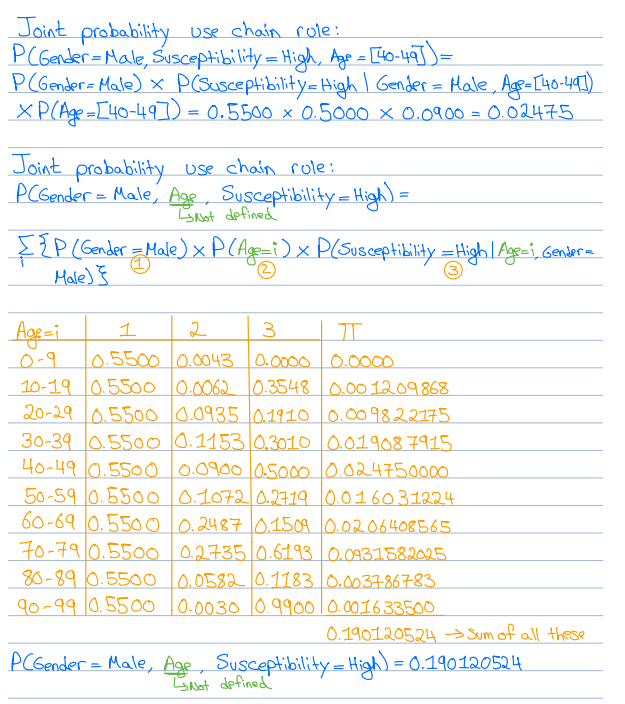 Joint probability use chain rule:
P(Gender = Male, Susceptibility = High, Age = [40-49]) =
P(Gender = Male) × P(Susceptibility = High | Gender = Male, Age=[40-49])
× P(Age=[40-49]) = 0.5500 × 0.5000 × 0.0900 = 0.02475
Joint probability use chain rule:
P(Gender = Male, Age, Susceptibility = High) =
↳ Not defined
Σ { P(Gender = Male) × P(Age=i) × P(Susceptibility = High | Age=i, Gender =
i ① ② ③
Male) }
Age=i 1 2 3 π
0-9 0.5500 0.0043 0.0000 0.0000
10-19 0.5500 0.0062 0.3548 0.001209868
20-29 0.5500 0.0935 0.1910 0.009822175
30-39 0.5500 0.1153 0.3010 0.019087915
40-49 0.5500 0.0900 0.5000 0.024750000
50-59 0.5500 0.1072 0.2719 0.016031224
60-69 0.5500 0.2487 0.1509 0.0206408565
70-79 0.5500 0.2735 0.6193 0.0931582025
80-89 0.5500 0.0582 0.1183 0.003786783
90-99 0.5500 0.0030 0.9900 0.001633500
0.190120524 → Sum of all these
P(Gender = Male, Age, Susceptibility = High) = 0.190120524
↳ Not defined